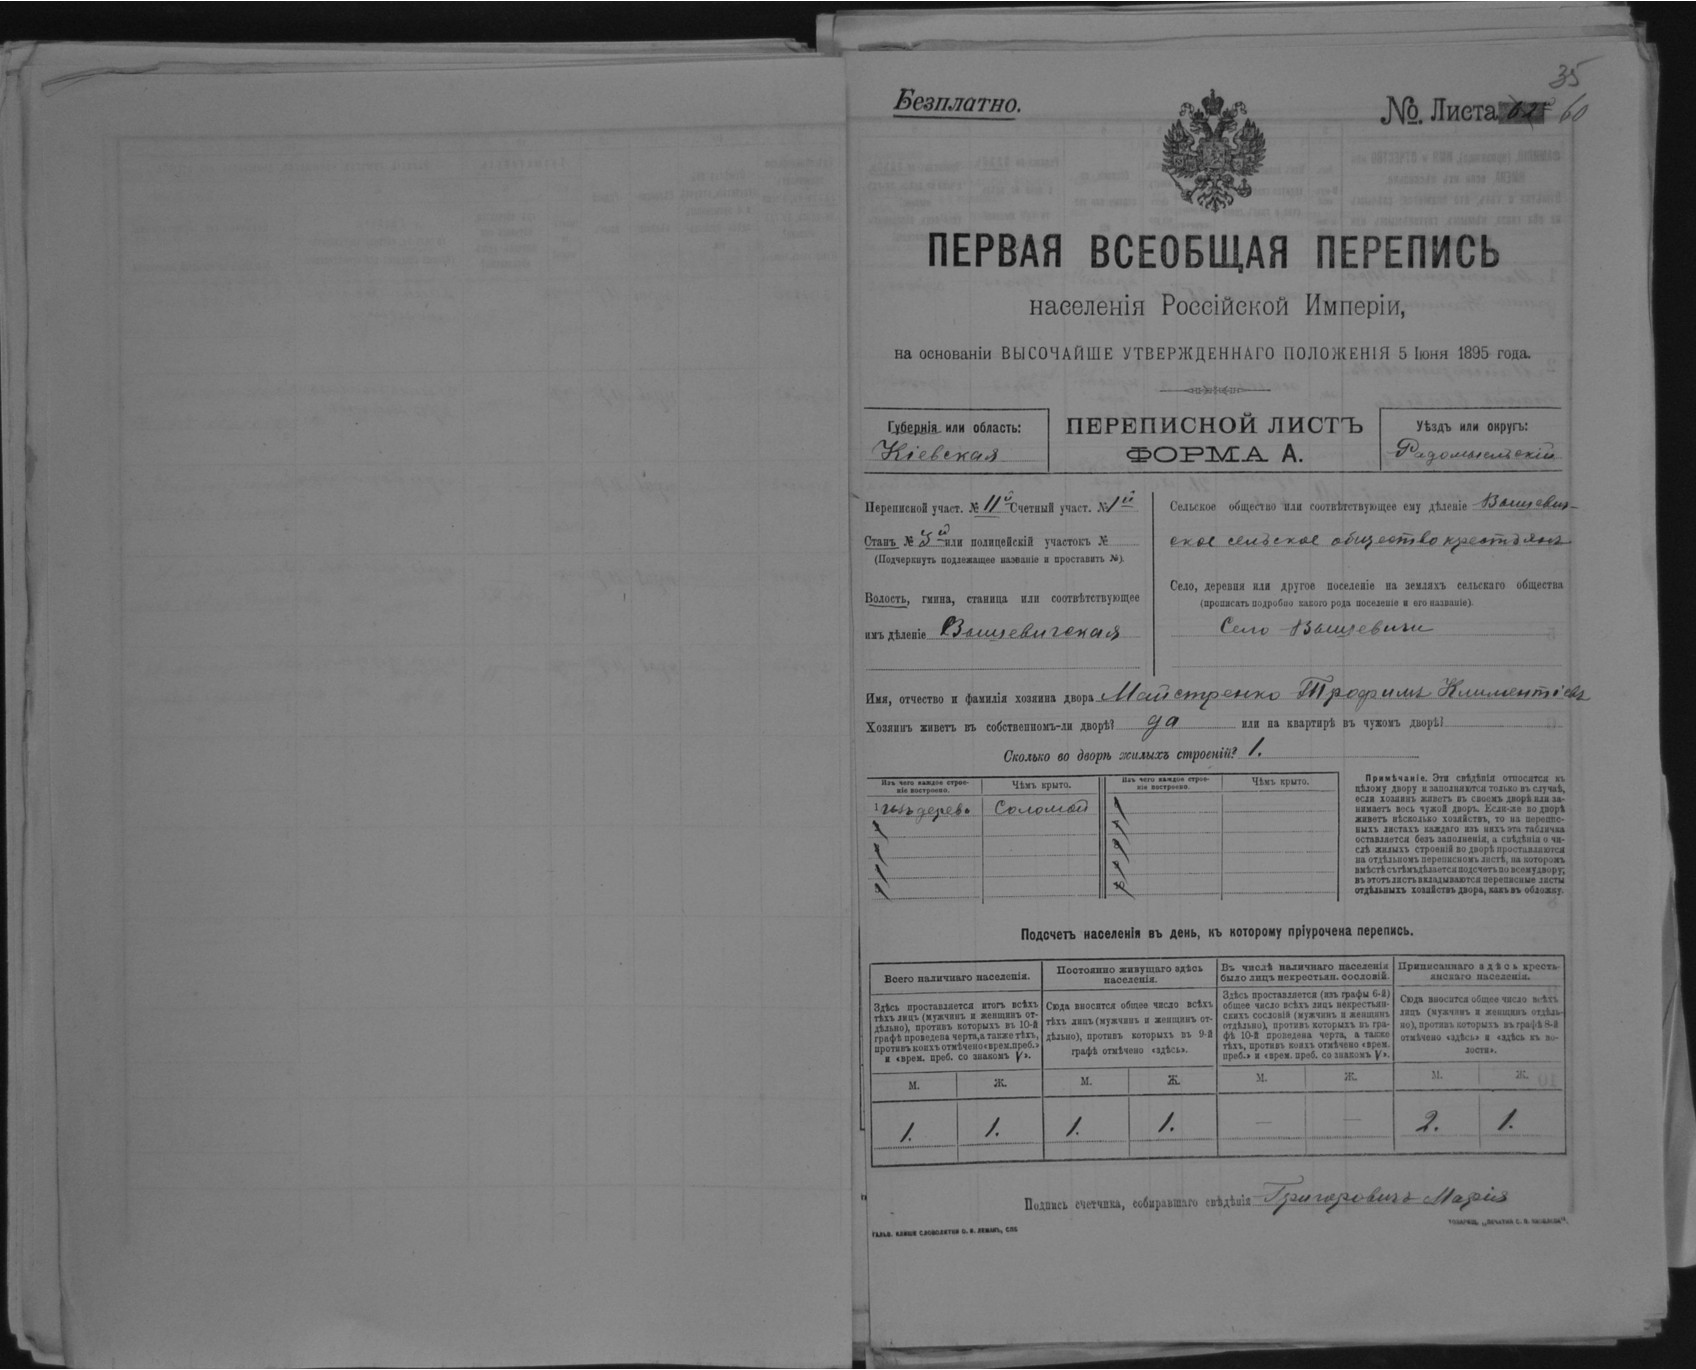 35
Безплатно.
№. Листа 60
ПЕРВАЯ ВСЕОБЩАЯ ПЕРЕПИСЬ
населенія Россійской Имперіи,
на основаніи ВЫСОЧАЙШЕ УТВЕРЖДЕННАГО ПОЛОЖЕНІЯ 5 Іюня 1895 года.
Губернія или область:
Кіевская
ПЕРЕПИСНОЙ ЛИСТЪ
ФОРМА А.
Уѣздъ или округъ:
Радомысльскій
Переписной участ. № 11й Счетный участ. № 1й
Станъ № 3й или полицейскій участокъ №
(Подчеркнуть подлежащее названіе и проставить №).
Волость, гмина, станица или соотвѣтствующее
имъ дѣленіе Вышевичская
Сельское общество или соотвѣтствующее ему дѣленіе Вышевич-
ское сельское общество крестьянъ
Село, деревня или другое поселеніе на земляхъ сельскаго общества
(прописать подробно какого рода поселеніе и его названіе).
Село Вышевичи
Имя, отчество и фамилія хозяина двора Майстренко Трофимъ Климентіевъ
Хозяинъ живетъ въ собственномъ-ли дворѣ? да или на квартирѣ въ чужомъ дворѣ?
Сколько во дворѣ жилыхъ строеній? 1.
Изъ чего каждое строе-
ніе построено.
Чѣмъ крыто.
Изъ чего каждое строе-
ніе построено.
Чѣмъ крыто.
1 дерева Соломой
Примѣчаніе. Эти свѣдѣнія относятся къ
цѣлому двору и заполняются только въ случаѣ,
если хозяинъ живетъ въ своемъ дворѣ или за-
нимаетъ весь чужой дворъ. Если-же во дворѣ
живетъ нѣсколько хозяйствъ, то на перепис-
ныхъ листахъ каждаго изъ нихъ эта табличка
оставляется безъ заполненія, а свѣдѣнія о чи-
слѣ жилыхъ строеній во дворѣ проставляются
на отдѣльномъ переписномъ листѣ, на которомъ
вмѣстѣ съ тѣмъ дѣлается подсчетъ по всему двору;
въ этотъ листъ вкладываются переписные листы
отдѣльныхъ хозяйствъ двора, какъ въ обложку.
Подсчетъ населенія въ день, къ которому пріурочена перепись.
Всего наличнаго населенія.
Здѣсь проставляется итогъ всѣхъ
тѣхъ лицъ (мужчинъ и женщинъ от-
дѣльно), противъ которыхъ въ 10-й
графѣ проведена черта, а также тѣхъ,
противъ коихъ отмѣчено «врем. преб.»
и «врем. преб. со знакомъ V».
Постоянно живущаго здѣсь
населенія.
Сюда вносится общее число всѣхъ
тѣхъ лицъ (мужчинъ и женщинъ от-
дѣльно), противъ которыхъ въ 9-й
графѣ отмѣчено «здѣсь».
Въ числѣ наличнаго населенія
было лицъ некрестьян. сословій.
Здѣсь проставляется (изъ графы 6-й)
общее число всѣхъ лицъ некрестьян-
скихъ сословій (мужчинъ и женщинъ
отдѣльно), противъ которыхъ въ гра-
фѣ 10-й проведена черта, а также
тѣхъ, противъ коихъ отмѣчено «врем.
преб.» и «врем. преб. со знакомъ V».
Приписаннаго здѣсь кресть-
янскаго населенія.
Сюда вносится общее число всѣхъ
лицъ (мужчинъ и женщинъ отдѣль-
но), противъ которыхъ въ графѣ 8-й
отмѣчено «здѣсь» и «здѣсь къ во-
лости».
М. Ж. М. Ж. М. Ж. М. Ж.
1. 1. 1. 1. — — 2. 1.
Подпись счетчика, собиравшаго свѣдѣнія Григоровичъ Марія
ГАЛЬВ. КЛИШЕ СЛОВОЛИТНИ О. И. ЛЕМАНЪ, СПБ